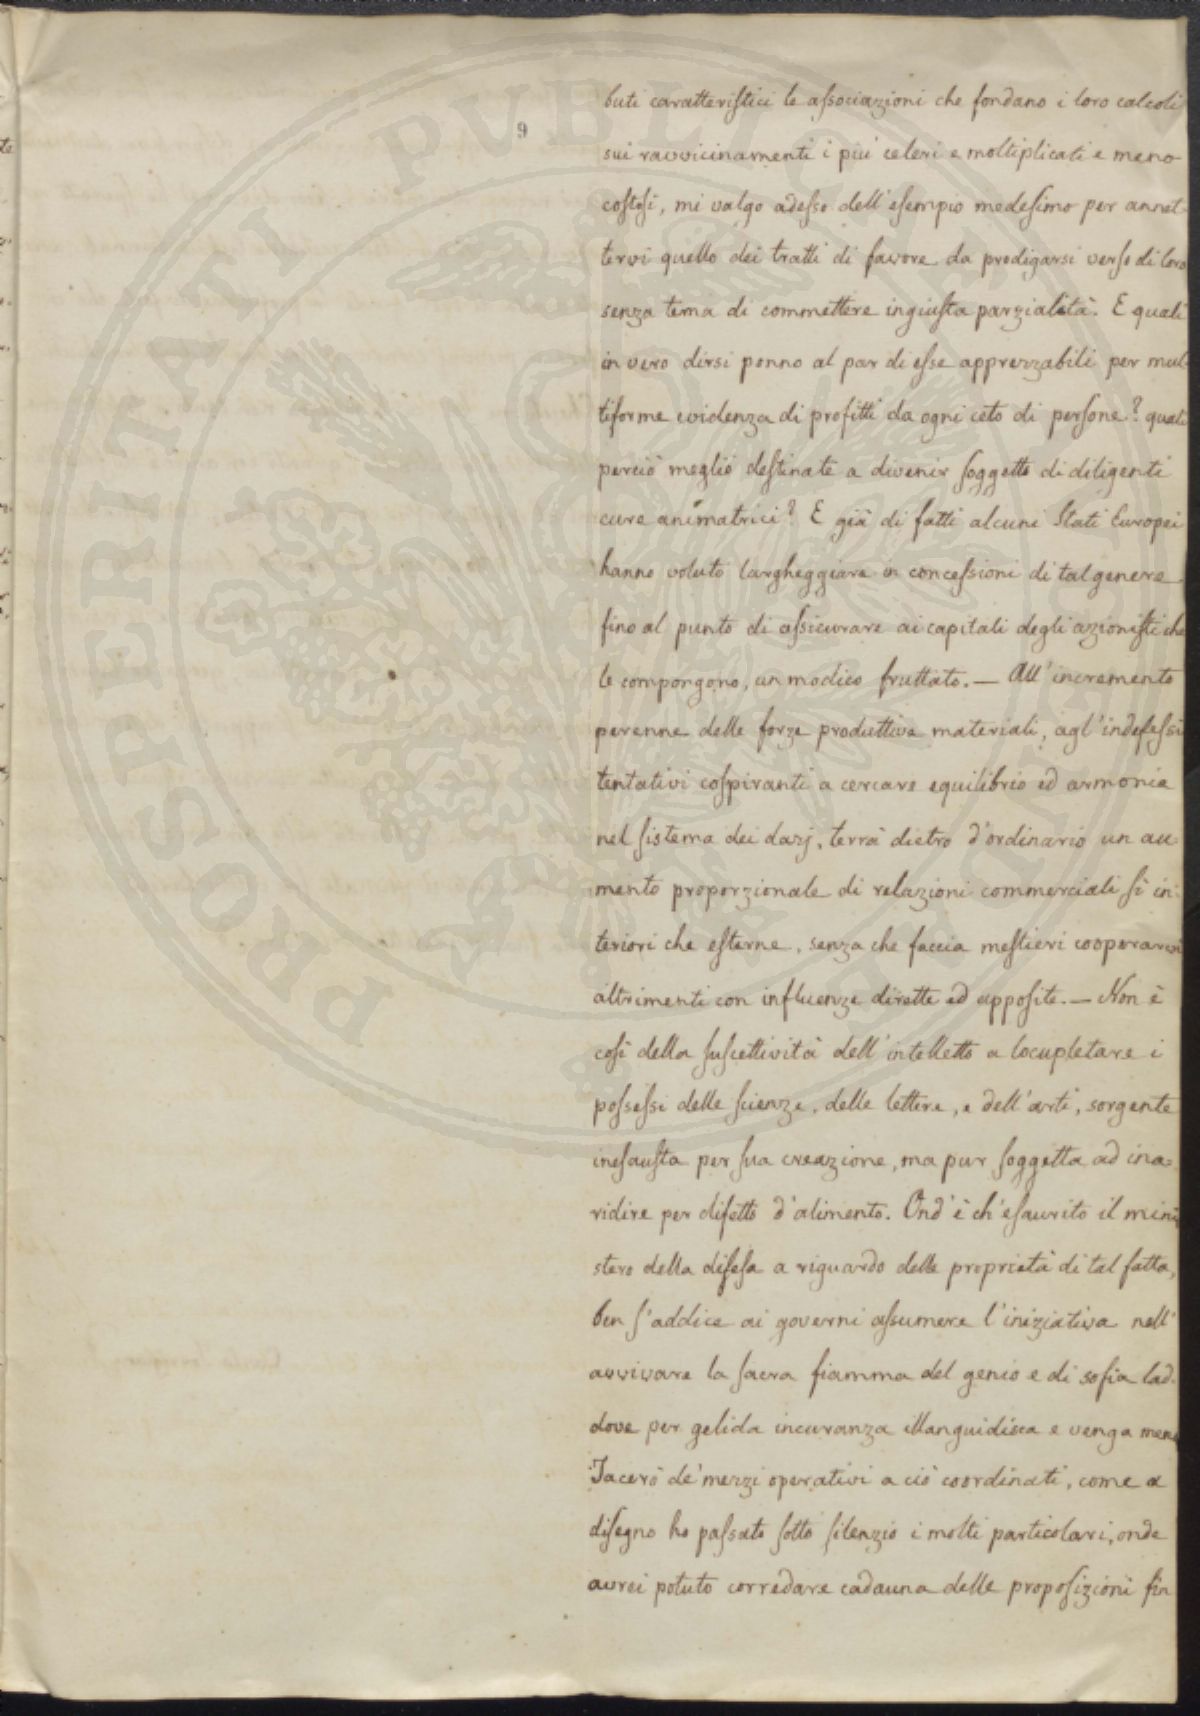 9
buti caratteristici le associazioni che fondano i loro calcoli
sui ravvicinamenti i più celeri e moltiplicati e meno
costosi, mi valgo adesso dell'esempio medesimo per annet-
tervi quello dei tratti di favore da prodigarsi verso di loro
senza tema di commettere ingiusta parzialità. E quali
in vero dirsi ponno al par di esse apprezzabili per mul-
tiforme evidenza di profitti da ogni ceto di persone? quali
perciò meglio destinate a divenir soggetto di diligenti
cure animatrici? E già di fatti alcuni Stati Europei
hanno voluto largheggiare in concessioni di tal genere
fino al punto di assicurare ai capitali degli azionisti che
le compongono, un modico fruttato. — All'incremento
perenne delle forze produttive materiali, agl'indefessi
tentativi cospiranti a cercare equilibrio ed armonia
nel sistema dei dazj, terrà dietro d'ordinario un au-
mento proporzionale di relazioni commerciali sì in-
teriori che esterne, senza che faccia mestieri cooperarvi
altrimenti con influenze dirette ed apposite. — Non è
così della suscettività dell'intelletto a locupletare i
possessi delle scienze, delle lettere, e dell'arti, sorgente
inesausta per sua creazione, ma pur soggetta ad ina=
ridire per difetto d'alimento. Ond'è ch'esaurito il mini
stero della difesa a riguardo delle proprietà di tal fatta,
ben s'addice ai governi assumere l'iniziativa nell'
avvivare la sacra fiamma del genio e di sofia lad-
dove per gelida incuranza illanguidisca e venga meno
Tacerò de' mezzi operativi a ciò coordinati, come a
disegno ho passato sotto silenzio i molti particolari, onde
avrei potuto corredare cadauna delle proposizioni fin
PROSPERITATI PUBLICAE